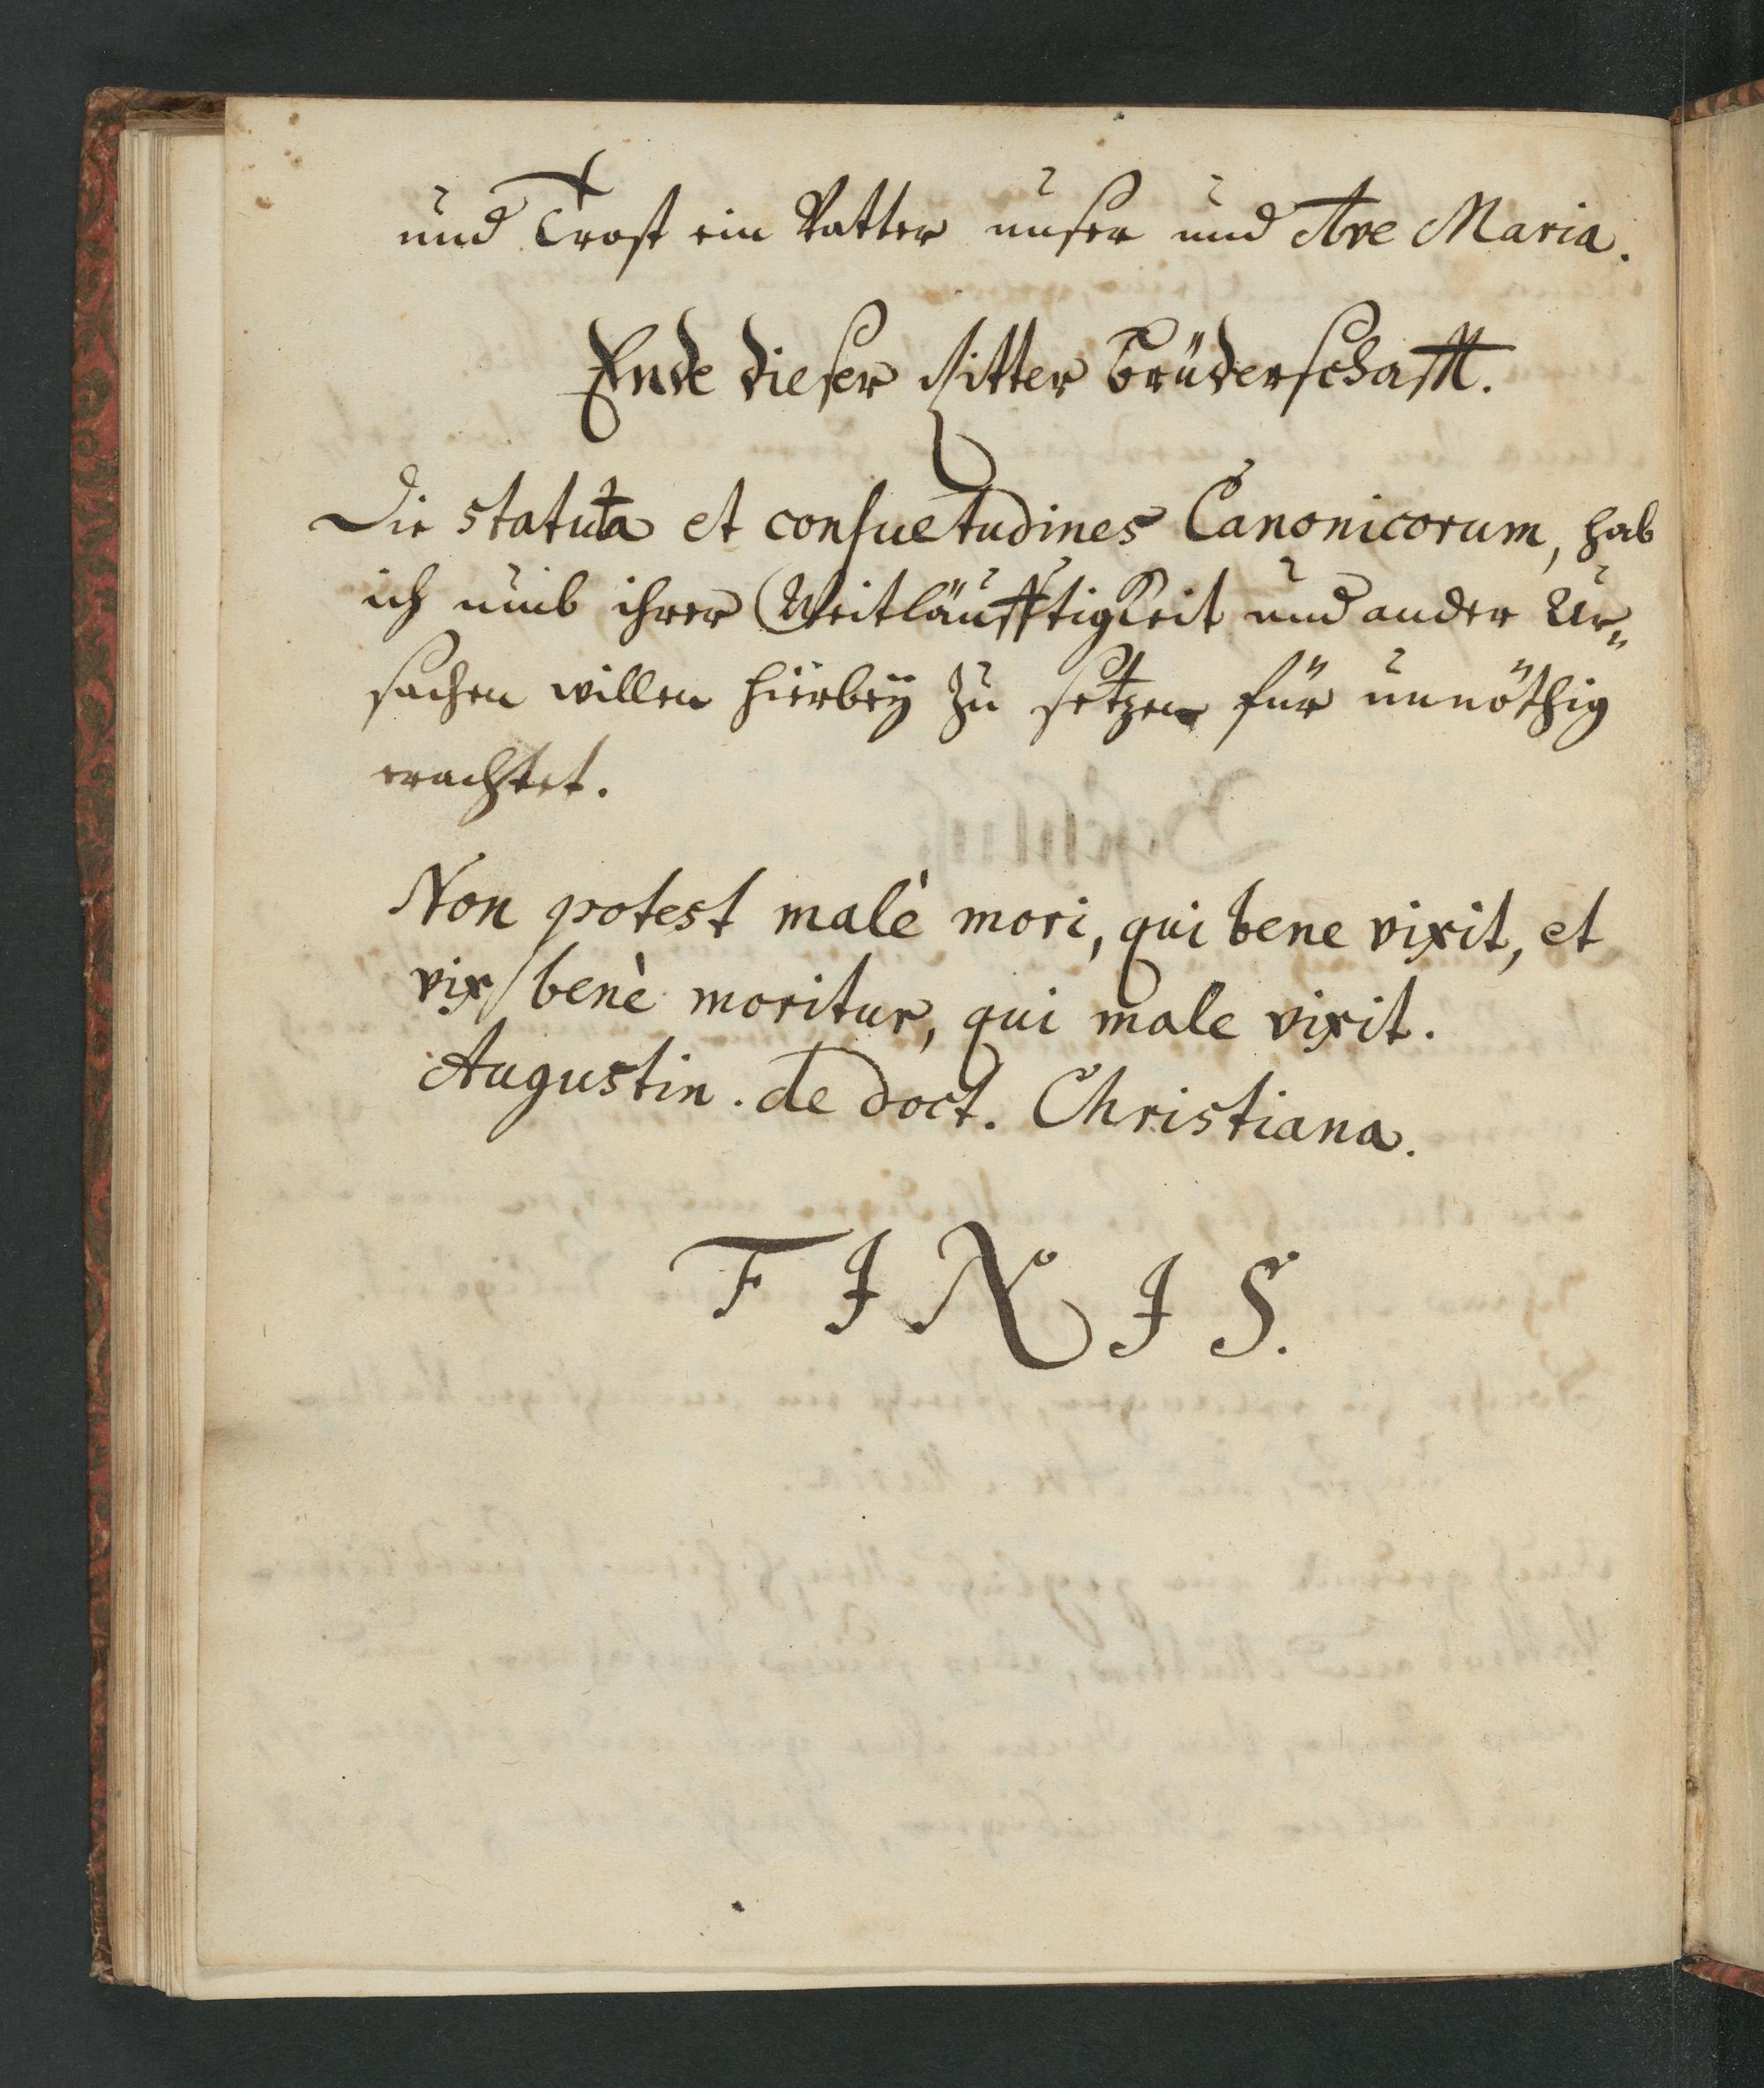 und Trost ein Vatter unser und Ave Maria.
Ende dieser Ritter Brüderschafft.
Die statuta et consuetudines Canonicorum, hab
ich umb ihrer Weitläufftigkeit und ander Ur„
sachen willen hierbeÿ zu setzen für unnöthig
erachtet.
Non potest malè mori, qui bene vixit, et
vix benè moritur, qui male vixit.
Augustin. de doct. Christiana.
FINIS.